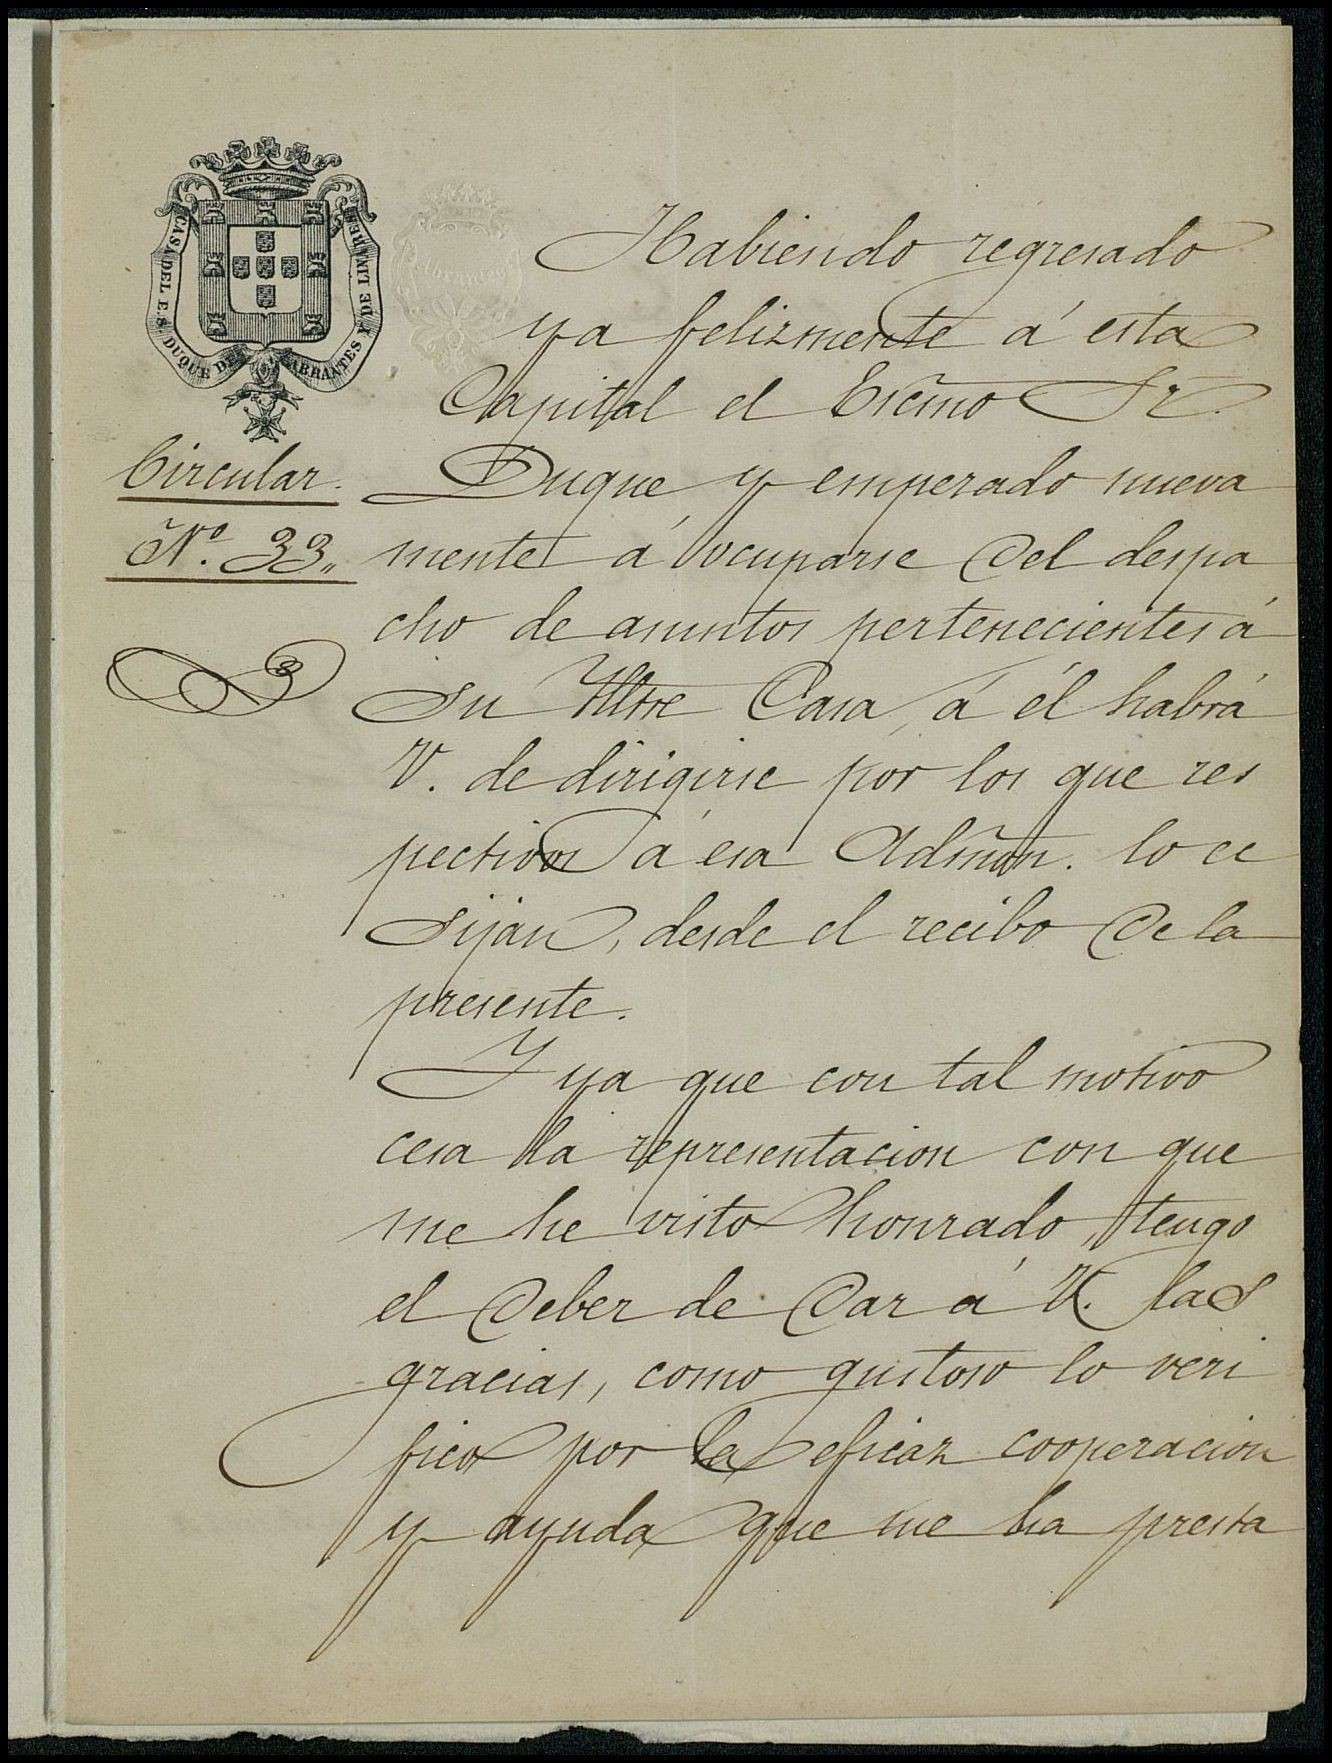 CASA DEL E. S. DUQUE DE ABRANTES Y DE LINARES
Circular.
Nº. 33.,
Habiendo regresado
ya felizmente á esta
Capital el Excmo Sr.
Duque, y empezado nueva
mente á ocuparse del despa
cho de asuntos pertenecientes á
su Iltre Casa, á él habrá
V. de dirigirse por los que res
pection á esa Admon. lo ec
sijan, desde el recibo de la
presente.
Y ya que con tal motivo
cesa la representacion con que
me he visto honrado, tengo
el deber de dar á V. las
gracias, como gustoso lo veri
fico por la eficaz cooperacion
y ayuda que me ha presta